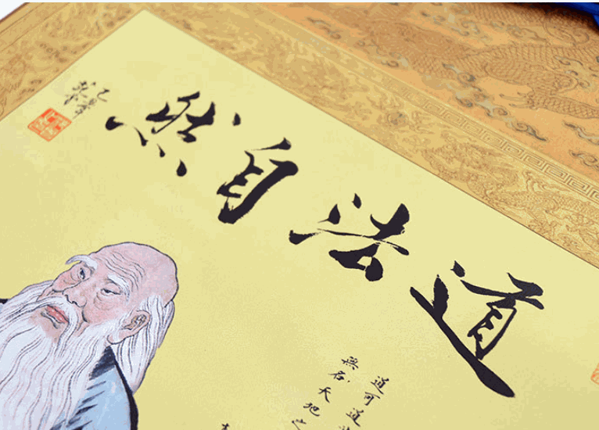 道法自然
道可道
無名天地之